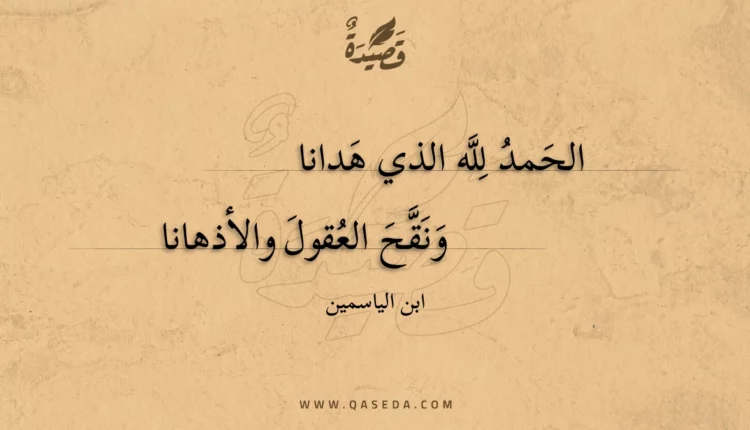 قَصِيدَةٌ
الحَمدُ لِلَّه الذي هَدانا
وَنَقَّحَ العُقولَ والأذهانا
ابن الياسمين
WWW.QASEDA.COM